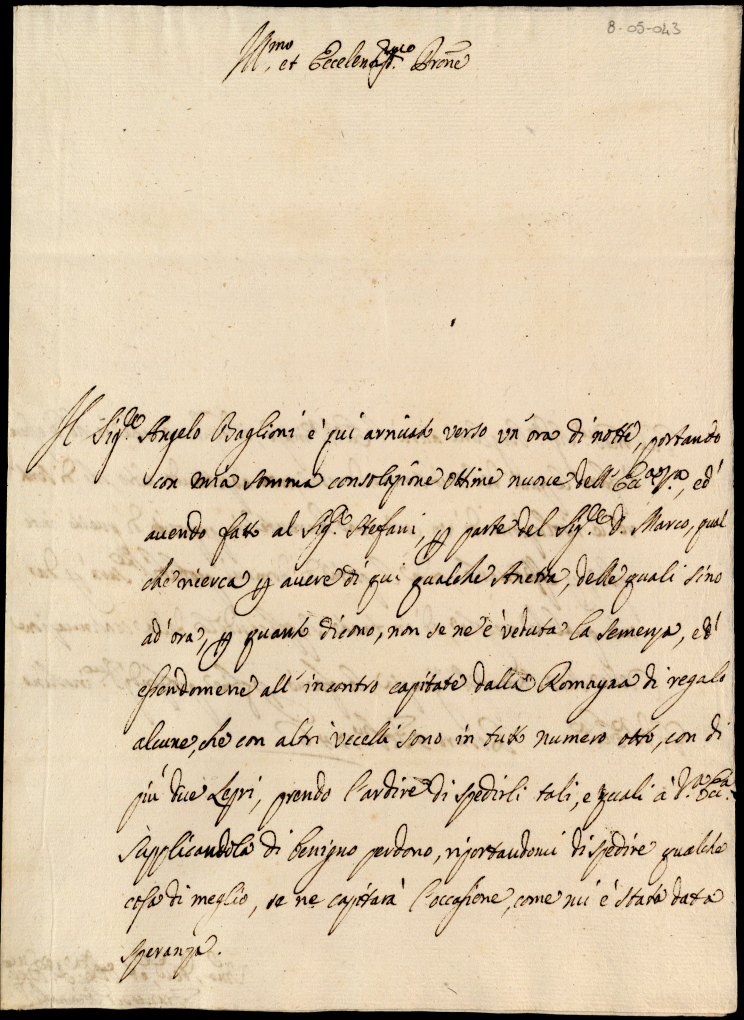 8-05-043
Ill.mo et Eccelentiss.mo Prone
Il Sig.re Angelo Baglioni è qui arriuato verso vn'ora di notte, portando
con mia somma consolazione ottime nuove dell'Ecc.a V.a, ed'
auendo fatto al Sig.re Stefani, p parte del Sig.re D. Marco, qual
che ricerca p auere di qui qualche Anetra, delle quali sino
ad'ora, p quanto dicono, non se ne è veduta la semenza, ed'
essendomene all'incontro capitate dalla Romagna di regalo
alcune, che con altri vccelli sono in tutto numero otto, con di
più due Lepri, prendo l'ardire di spedirli tali, e quali à V.a Ecc.a
supplicandola di benigno perdono, riportandomi di spedire qualche
cosa di meglio, se ne capitarà l'occasione, come mi è stata data
speranza.